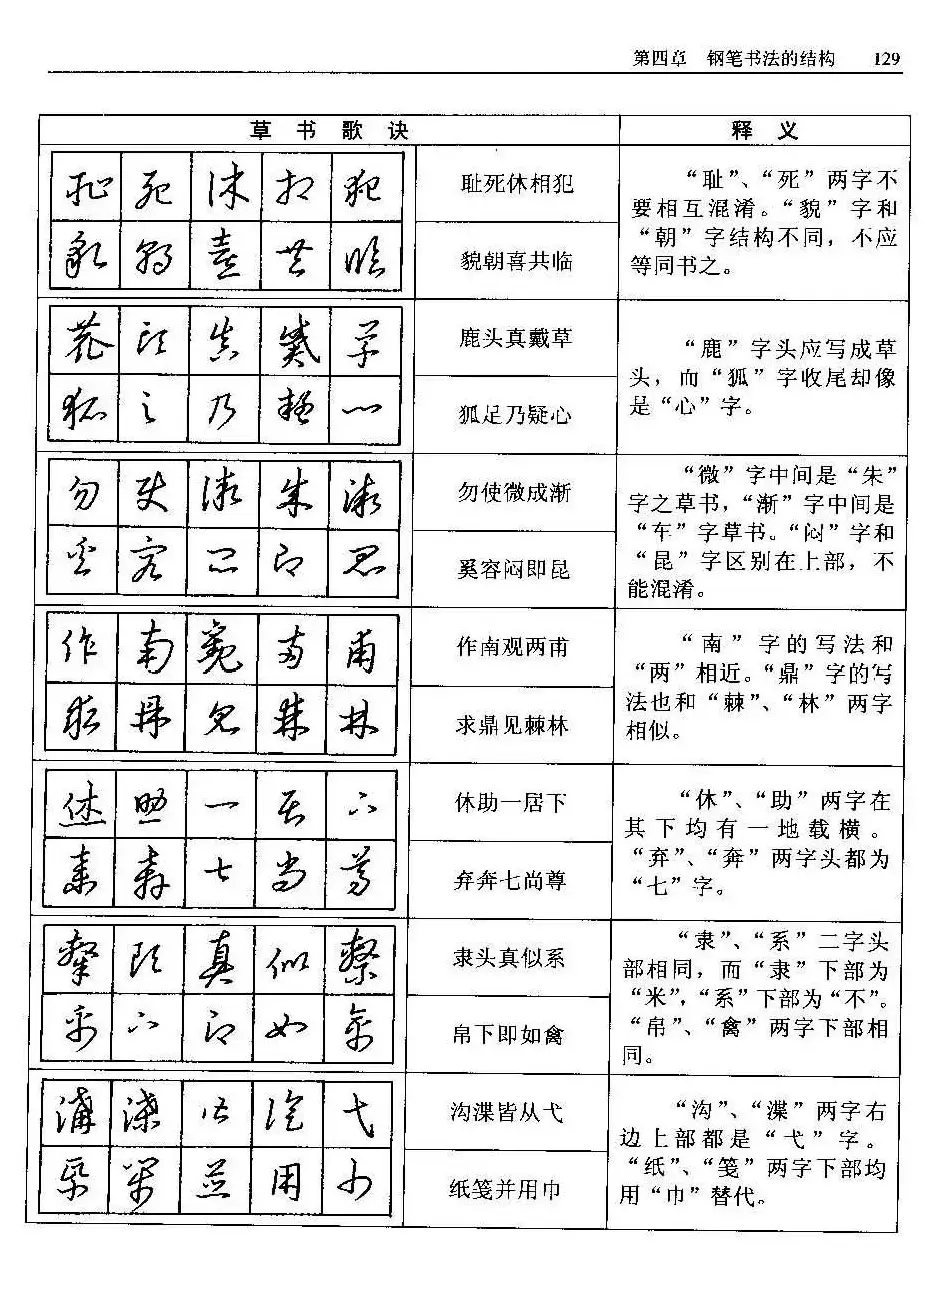 第四章 钢笔书法的结构 129
草书歌诀 释义
耻死休相犯
貌朝喜共临
“耻”、“死”两字不
要相互混淆。“貌”字和
“朝”字结构不同，不应
等同书之。
鹿头真戴草
狐足乃疑心
“鹿”字头应写成草
头，而“狐”字收尾却像
是“心”字。
勿使微成渐
奚容闷即昆
“微”字中间是“朱”
字之草书，“渐”字中间是
“车”字草书。“闷”字和
“昆”字区别在上部，不
能混淆。
作南观两甫
求鼎见棘林
“南”字的写法和
“两”相近。“鼎”字的写
法也和“棘”、“林”两字
相似。
休助一居下
弃奔七尚尊
“休”、“助”两字在
其下均有一地载横。
“弃”、“奔”两字头都为
“七”字。
隶头真似系
帛下即如禽
“隶”、“系”二字头
部相同，而“隶”下部为
“米”，“系”下部为“不”。
“帛”、“禽”两字下部相
同。
沟渫皆从弋
纸笺并用巾
“沟”、“渫”两字右
边上部都是“弋”字。
“纸”、“笺”两字下部均
用“巾”替代。